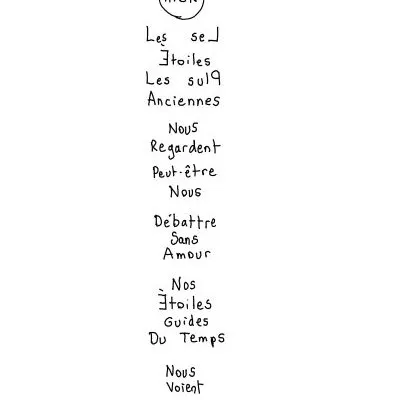 Les seL
Étoiles
Les sulP
Anciennes
Nous
Regardent
Peut-être
Nous
Débattre
Sans
Amour
Nos
Étoiles
Guides
Du Temps
Nous
Voient